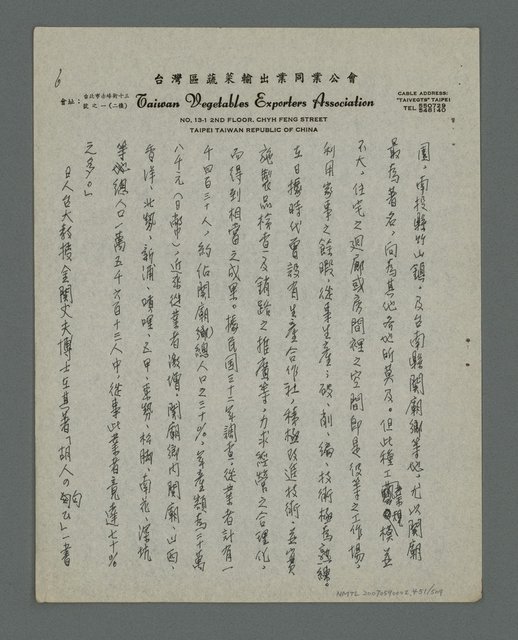 6
台灣區蔬菜輸出業同業公會
會址：台北市赤峰街十三號之一(二樓)
Taiwan Vegetables Exporters Association
CABLE ADDRESS:
"TAIVEGTS" TAIPEI
TEL 550729
548140
NO. 13-1 2ND FLOOR. CHYH FENG STREET
TAIPEI TAIWAN REPUBLIC OF CHINA
園，南投縣竹山鎮，及台南縣關廟鄉等地，尤以關廟
最為著名，向為其他各地所莫及。但此種工業規模並
不大，住宅之迴廊或房間裡之空間即是從業之工作場，
利用家事之餘暇，從事生產，破、削、編、技術極為熟練。
在日據時代曾設有生產合作社，積極改進技術，並實
施製品檢查及銷路之推廣等，力求經營之合理化，
而得到相當之成果。據民國三十二年調查，從業者計有一
千四百三十人，約佔關廟鄉總人口之三十％，年產額為二十萬
八千元(日幣)，近來從業者激增，關廟鄉內關廟、山西、
香洋、北勢、新浦、埤哩、五甲、東勢、松腳、南花、深坑
等地總人口一萬五千六百十三人中，從事此業者竟達七十％
之多。」
日人台大教授金關丈夫博士在其著「胡人の匂ひ」一書
NMTL 20070590002 451/509